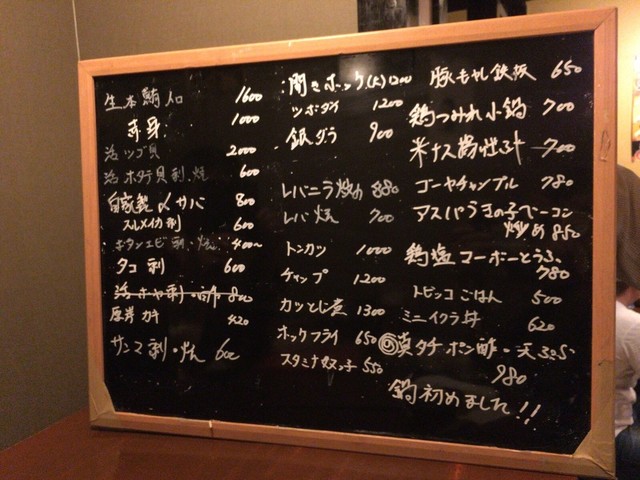 生本鮪 1600
赤身 1000
活ツブ貝 2000
活ホタテ貝刺・焼 600
自家製〆サバ 800
スルメイカ刺 600
ボタンエビ刺・焼 400～
タコ刺 600
活ホヤ刺・酢 800
厚岸カキ 420
サンマ刺・焼 600
開きホッケ(大)1200
ツボダイ 1200
銀ダラ 900
レバニラ炒め 880
レバー焼 700
トンカツ 1000
チャップ 1200
カツとじ煮 1300
ホックフライ 650
スタミナ奴っ子 550
豚もやし鉄板 650
鶏つみれ小鍋 700
米ナス 700
ゴーヤチャンプル 780
アスパラきの子ベーコン
炒め 850
鶏塩コーボーとうふ
780
トビッコごはん 500
ミニイクラ丼 620
◎真タチポン酢・天ぷら
980
鍋初めました!!